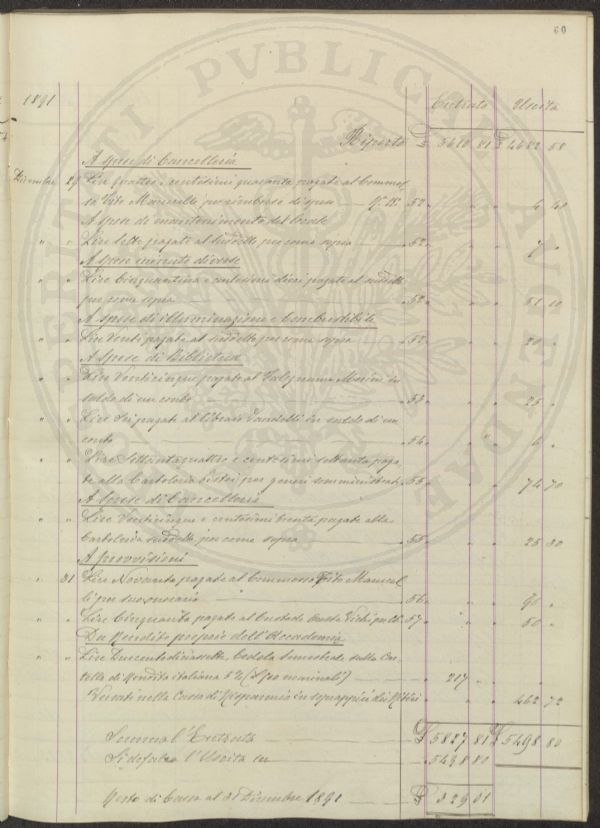 60
1891 Entrata Uscita
Riporto £ 5610 81 £ 4682 58
A spese di Cancelleria
Dicembre 29 Lire quattro e centesimi quaranta pagate al Commes
so Vito Manuelli per rimborso di spese 52 4 40
A spese di mantenimento del locale
" " Lire Sette pagate al suddetto per come sopra 52 7 "
A spese minute diverse
" " Lire Cinquantuna e centesimi dieci pagate al suddetto
per come sopra 52 51 10
A spese di illuminazione e Combustibile
" " Lire Venti pagate al suddetto per come sopra 52 20 "
A Spese di Biblioteca
" " Lire Venticinque pagate al Falegname Masini in
saldo di un conto 53 25 "
" " Lire Sei pagate al libraio in saldo di un
conto 54 6 "
" " Lire Settantaquattro e centesimi settanta paga
te alla Cartoleria per generi somministrati 55 74 70
A Spese di Cancelleria
" " Lire Venticinque e centesimi trenta pagate alla
Cartoleria suddetta per come sopra 55 25 30
A provvisioni
" 31 Lire Novanta pagate al Commesso Vito Manuel
li per suo onorario 56 90 "
" " Lire Cinquanta pagate al Custode 57 50 "
Da Rendite proprie dell'Accademia
" " Lire Duecentodiciassette, Cedola Semestrale sulla Car
tella di Rendita italiana 5% 217 "
Versati nella Cassa di Risparmio in 462 72
Somma l'Entrata £ 5827 81 £ 5498 80
Si defalca l'Uscita in 5498 80
Resto di Cassa al 31 Dicembre 1891 £ 329 01
PERITIS PVBLICAE AVGENDAE